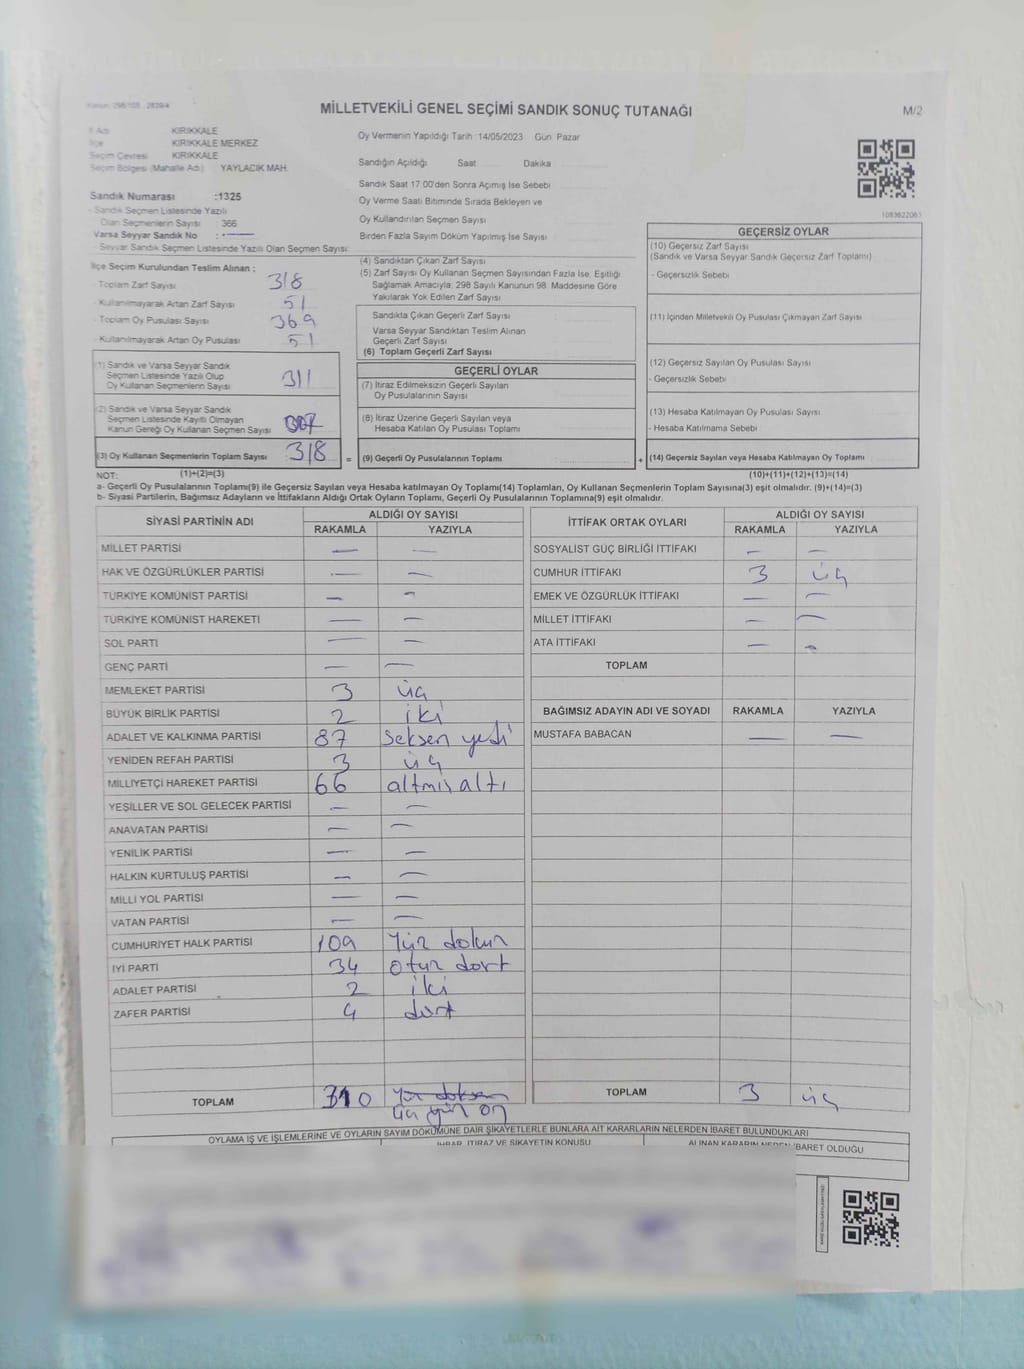 Kanun: 298/105 , 2839/4
MİLLETVEKİLİ GENEL SEÇİMİ SANDIK SONUÇ TUTANAĞI
M/2
İl Adı KIRIKKALE
İlçe KIRIKKALE MERKEZ
Seçim Çevresi KIRIKKALE
Seçim Bölgesi (Mahalle Adı) YAYLACIK MAH.
Sandık Numarası :1325
- Sandık Seçmen Listesinde Yazılı
Olan Seçmenlerin Sayısı : 366
Varsa Seyyar Sandık No : —
- Seyyar Sandık Seçmen Listesinde Yazılı Olan Seçmen Sayısı:
İlçe Seçim Kurulundan Teslim Alınan :
- Toplam Zarf Sayısı 318
- Kullanılmayarak Artan Zarf Sayısı 51
- Toplam Oy Pusulası Sayısı 369
- Kullanılmayarak Artan Oy Pusulası 51
(1) Sandık ve Varsa Seyyar Sandık
Seçmen Listesinde Yazılı Olup
Oy Kullanan Seçmenlerin Sayısı 311
(2) Sandık ve Varsa Seyyar Sandık
Seçmen Listesinde Kayıtlı Olmayan
Kanun Gereği Oy Kullanan Seçmen Sayısı
(3) Oy Kullanan Seçmenlerin Toplam Sayısı 318
(1)+(2)=(3)
Oy Vermenin Yapıldığı Tarih : 14/05/2023 Gün: Pazar
Sandığın Açıldığı Saat: Dakika:
Sandık Saat 17:00'den Sonra Açılmış İse Sebebi
Oy Verme Saati Bitiminde Sırada Bekleyen ve
Oy Kullandırılan Seçmen Sayısı
Birden Fazla Sayım Döküm Yapılmış İse Sayısı
(4) Sandıktan Çıkan Zarf Sayısı
(5) Zarf Sayısı Oy Kullanan Seçmen Sayısından Fazla İse, Eşitliği
Sağlamak Amacıyla, 298 Sayılı Kanunun 98. Maddesine Göre
Yakılarak Yok Edilen Zarf Sayısı
Sandıkta Çıkan Geçerli Zarf Sayısı
Varsa Seyyar Sandıktan Teslim Alınan
Geçerli Zarf Sayısı
(6) Toplam Geçerli Zarf Sayısı
GEÇERLİ OYLAR
(7) İtiraz Edilmeksizin Geçerli Sayılan
Oy Pusulalarının Sayısı
(8) İtiraz Üzerine Geçerli Sayılan veya
Hesaba Katılan Oy Pusulası Toplamı
= (9) Geçerli Oy Pusulalarının Toplamı
1083622061
GEÇERSİZ OYLAR
(10) Geçersiz Zarf Sayısı
(Sandık ve Varsa Seyyar Sandık Geçersiz Zarf Toplamı)
- Geçersizlik Sebebi
(11) İçinden Milletvekili Oy Pusulası Çıkmayan Zarf Sayısı
(12) Geçersiz Sayılan Oy Pusulası Sayısı
- Geçersizlik Sebebi
(13) Hesaba Katılmayan Oy Pusulası Sayısı
- Hesaba Katılmama Sebebi
+ (14) Geçersiz Sayılan veya Hesaba Katılmayan Oy Toplamı
(10)+(11)+(12)+(13)=(14)
NOT:
a- Geçerli Oy Pusulalarının Toplamı(9) ile Geçersiz Sayılan veya Hesaba katılmayan Oy Toplamı(14) Toplamları, Oy Kullanan Seçmenlerin Toplam Sayısına(3) eşit olmalıdır. (9)+(14)=(3)
b- Siyasi Partilerin, Bağımsız Adayların ve İttifakların Aldığı Ortak Oyların Toplamı, Geçerli Oy Pusulalarının Toplamına(9) eşit olmalıdır.
SİYASİ PARTİNİN ADI ALDIĞI OY SAYISI
RAKAMLA YAZIYLA
MİLLET PARTİSİ — —
HAK VE ÖZGÜRLÜKLER PARTİSİ — —
TÜRKİYE KOMÜNİST PARTİSİ — —
TÜRKİYE KOMÜNİST HAREKETİ — —
SOL PARTİ — —
GENÇ PARTİ — —
MEMLEKET PARTİSİ 3 üç
BÜYÜK BİRLİK PARTİSİ 2 iki
ADALET VE KALKINMA PARTİSİ 87 seksen yedi
YENİDEN REFAH PARTİSİ 3 üç
MİLLİYETÇİ HAREKET PARTİSİ 66 altmış altı
YEŞİLLER VE SOL GELECEK PARTİSİ — —
ANAVATAN PARTİSİ — —
YENİLİK PARTİSİ — —
HALKIN KURTULUŞ PARTİSİ — —
MİLLİ YOL PARTİSİ — —
VATAN PARTİSİ — —
CUMHURİYET HALK PARTİSİ 109 Yüz dokuz
İYİ PARTİ 34 otuz dört
ADALET PARTİSİ 2 iki
ZAFER PARTİSİ 4 dört
TOPLAM 310 Yüz doksan
üç yüz on
İTTİFAK ORTAK OYLARI ALDIĞI OY SAYISI
RAKAMLA YAZIYLA
SOSYALİST GÜÇ BİRLİĞİ İTTİFAKI — —
CUMHUR İTTİFAKI 3 üç
EMEK VE ÖZGÜRLÜK İTTİFAKI — —
MİLLET İTTİFAKI — —
ATA İTTİFAKI — —
TOPLAM
BAĞIMSIZ ADAYIN ADI VE SOYADI RAKAMLA YAZIYLA
MUSTAFA BABACAN — —
TOPLAM 3 üç
OYLAMA İŞ VE İŞLEMLERİNE VE OYLARIN SAYIM DÖKÜMÜNE DAİR ŞİKAYETLERLE BUNLARA AİT KARARLARIN NELERDEN İBARET BULUNDUKLARI
İHBAR, İTİRAZ VE ŞİKAYETİN KONUSU
ALINAN KARARIN NEDEN İBARET OLDUĞU